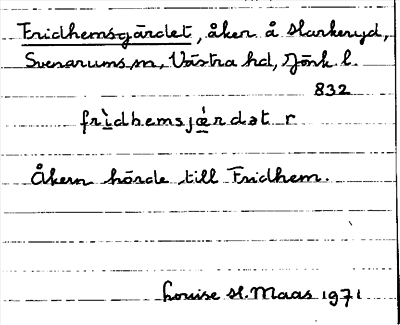 Fridhemsgärdet, åker å Harkeryd,
Svenarums sn, Västra hd, Jönk. l.
832
frìdhemsjæ̀rdət r
Åkern hörde till Fridhem.
Louise H. Maas 1971